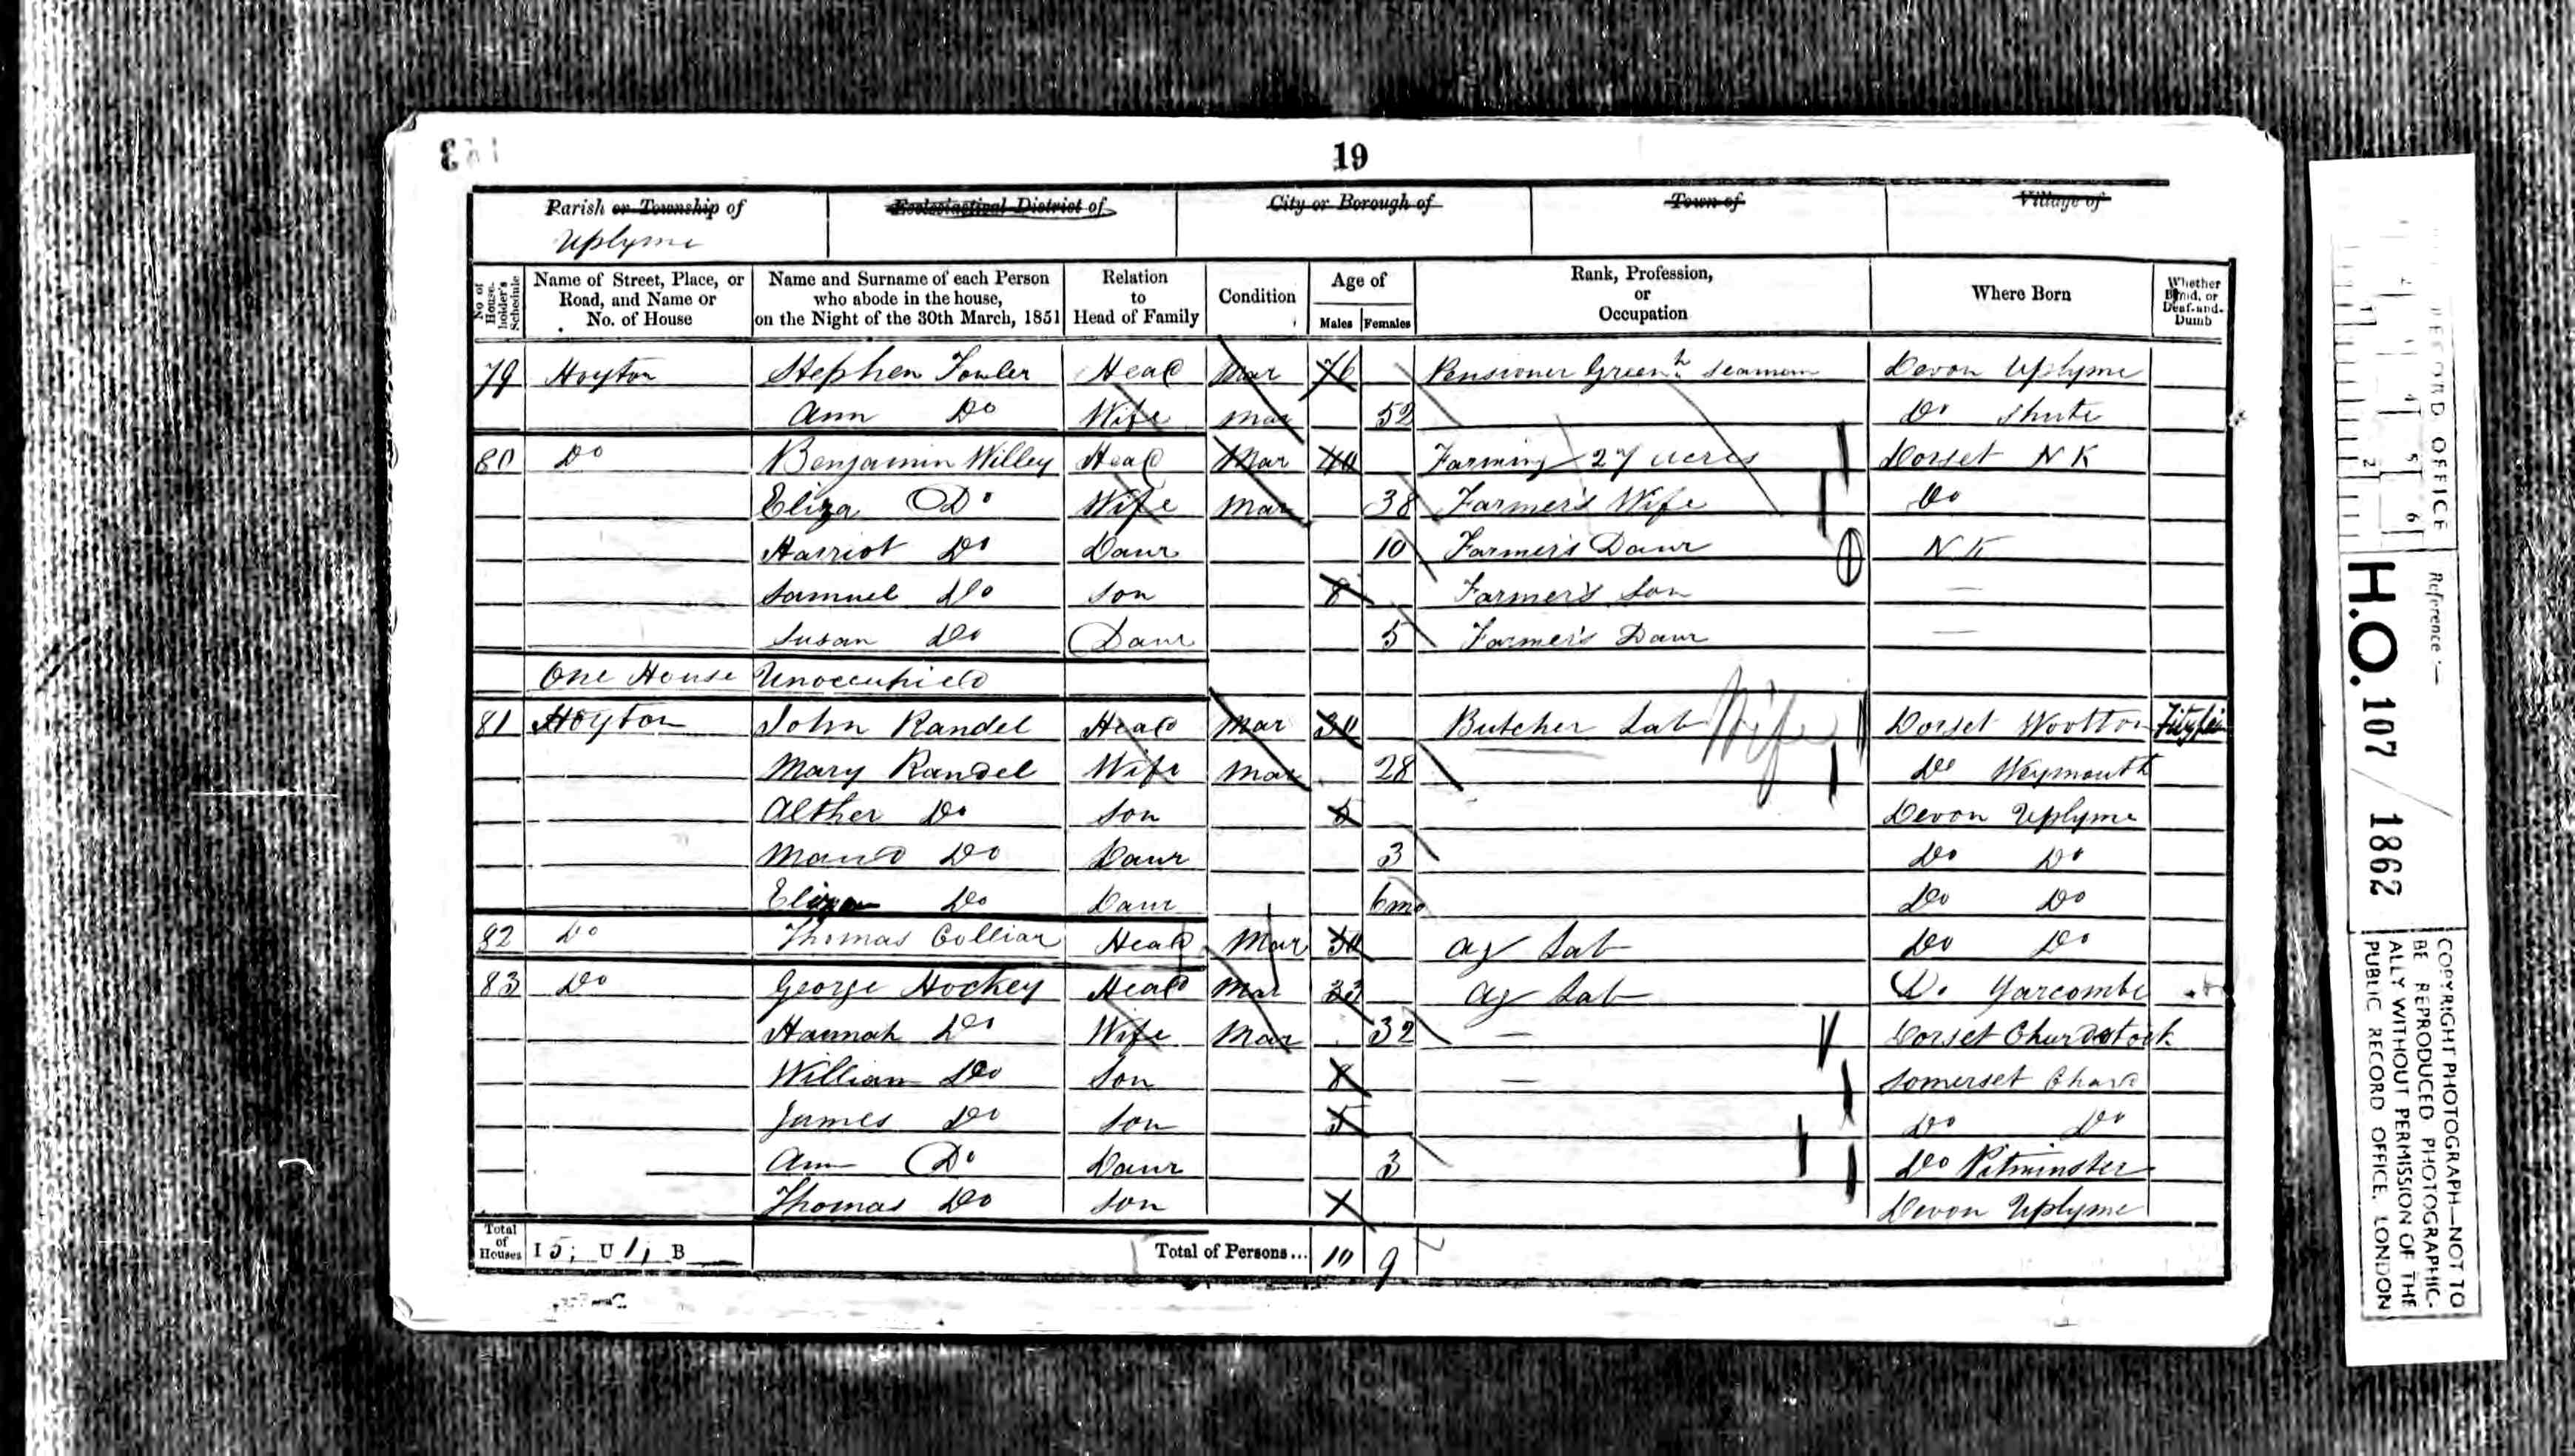 19
Parish or Township of
Ecclesiastical District of
City or Borough of
Town of
Village of
Uplyme
No of House-holder's Schedule
Name of Street, Place, or Road, and Name or No. of House
Name and Surname of each Person who abode in the house, on the Night of the 30th March, 1851
Relation to Head of Family
Condition
Age of
Males Females
Rank, Profession, or Occupation
Where Born
Whether Blind, or Deaf-and-Dumb
79 Hoyton Stephen Fowler Head Mar 76 Pensioner Green h Seaman Devon Uplyme
Ann Do Wife Mar 52 Do Shute
80 Do Benjamin Willey Head Mar 40 Farming 27 acres Dorset N K
Eliza Do Wife Mar 38 Farmer's Wife Do
Harriot Do Daur 10 Farmer's Daur N K
Samuel Do Son 8 Farmer's Son —
Susan Do Daur 5 Farmer's Daur —
One House Unoccupied
81 Hoyton John Randel Head Mar 30 Butcher Lab Wife Dorset Wootton
Mary Randel Wife Mar 28 Do Weymouth
Alther Do Son 5 Devon Uplyme
Maud Do Daur 3 Do Do
Eliza Do Daur 6mo Do Do
82 Do Thomas Colliar Head Mar 50 Ag Lab Do Do
83 Do George Hockey Head Mar 33 Ag Lab Do Yarcombe
Hannah Do Wife Mar 32 — Dorset Churdstock
William Do Son 8 — Somerset Chard
James Do Son 5 Do Do
Ann Do Daur 3 Do Pitminster
Thomas Do Son Devon Uplyme
Total of Houses I 5; U 1; B
Total of Persons... 10 9
RECORD OFFICE
Reference :—
H.O. 107 / 1862
COPYRIGHT PHOTOGRAPH—NOT TO
BE REPRODUCED PHOTOGRAPHIC-
ALLY WITHOUT PERMISSION OF THE
PUBLIC RECORD OFFICE, LONDON